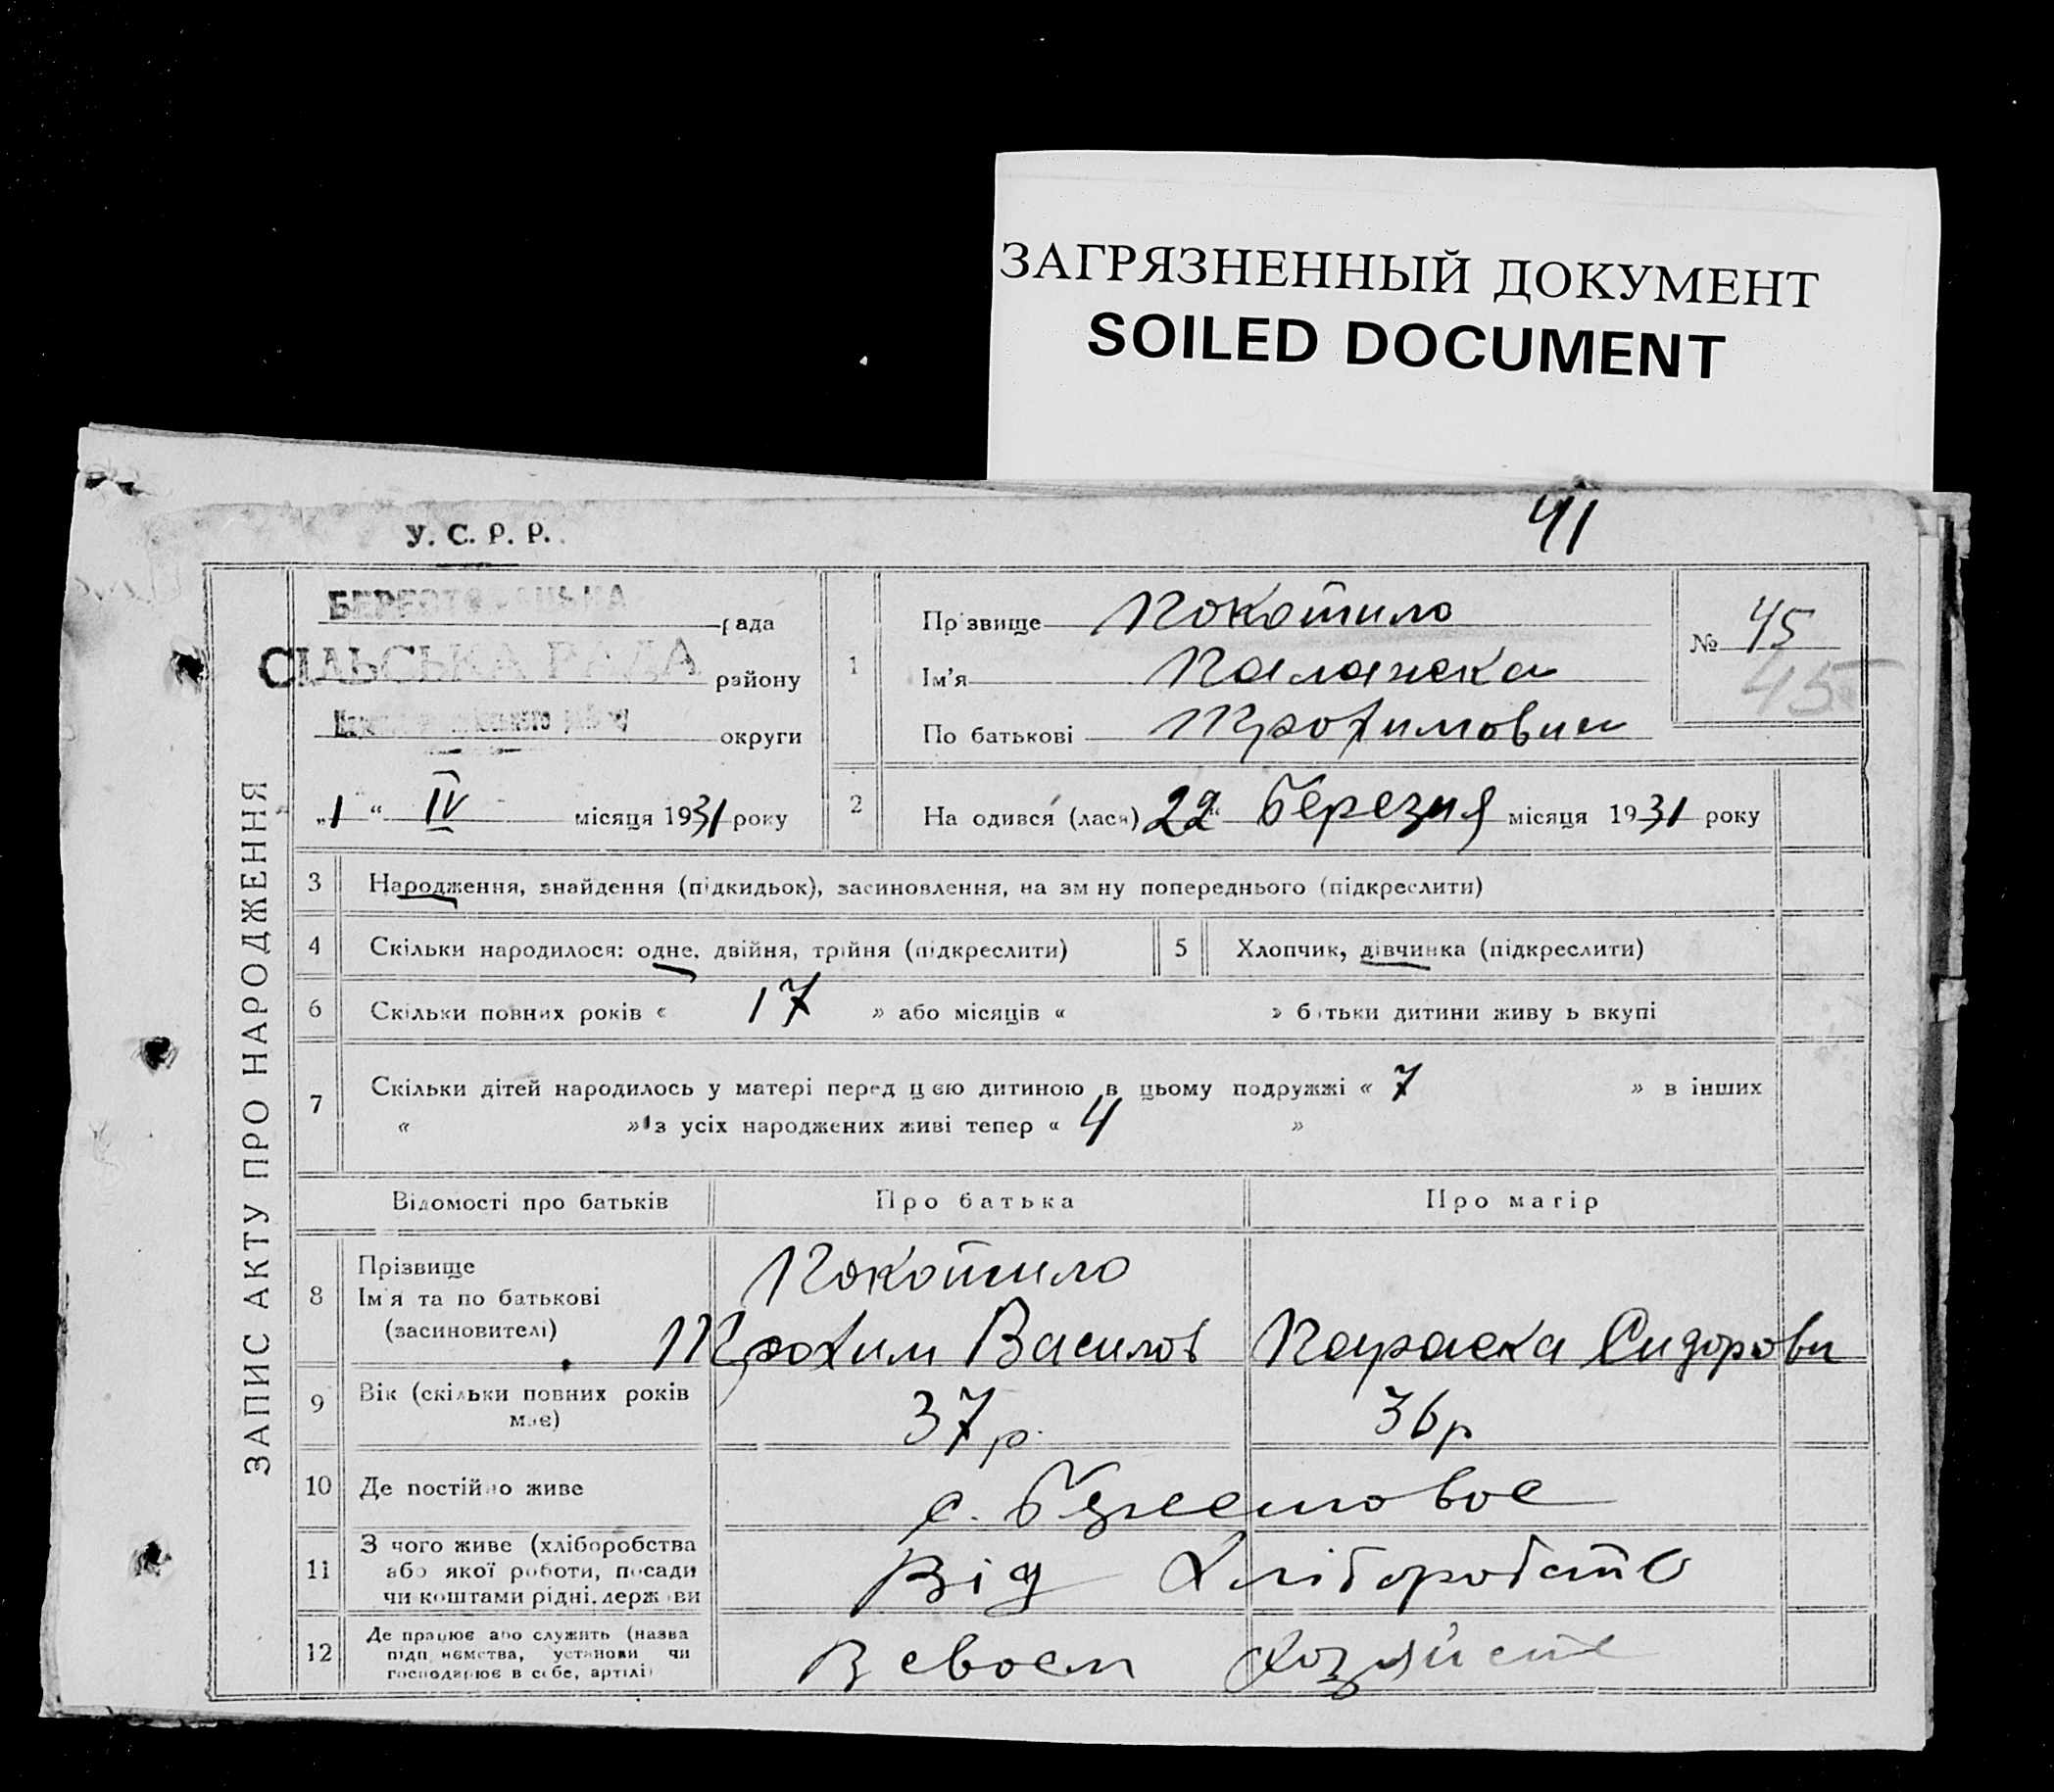 ЗАГРЯЗНЕННЫЙ ДОКУМЕНТ
SOILED DOCUMENT
41
У. С. Р. Р.
ЗАПИС АКТУ ПРО НАРОДЖЕННЯ
рада
СІЛЬСЬКА РАДА
району
округи
„1“ IV місяця 1931 року
1
Прізвище Покотило
Ім'я Палажка
По батькові Трохимовни
№ 45
45
2
На одився (лася) 22 березня місяця 1931 року
3 Народження, знайдення (підкидьок), засиновлення, на зм ну попереднього (підкреслити)
4 Скільки народилося: одне, двійня, трійня (підкреслити)
5 Хлопчик, дівчинка (підкреслити)
6 Скільки повних років « 17 » або місяців « » батьки дитини живу ь вкупі
7 Скільки дітей народилось у матері перед цією дитиною в цьому подружжі « 7 » в інших
« » Із усіх народжених живі тепер « 4 »
Відомості про батьків Про батька Про матір
8 Прізвище
Ім'я та по батькові
(засиновителі)
Покотило
Трохим Василов
Параска Сидоровн
9 Вік (скільки повних років
має)
37 р.
36 р
10 Де постійно живе
с. Берестовое
11 З чого живе (хліборобства
або якої роботи, посади
чи коштами рідні, держ ви
Від хліборобств
12 Де працює або служить (назва
підп иємства, установи чи
господарює в себе, артілі)
В своем хозяйств